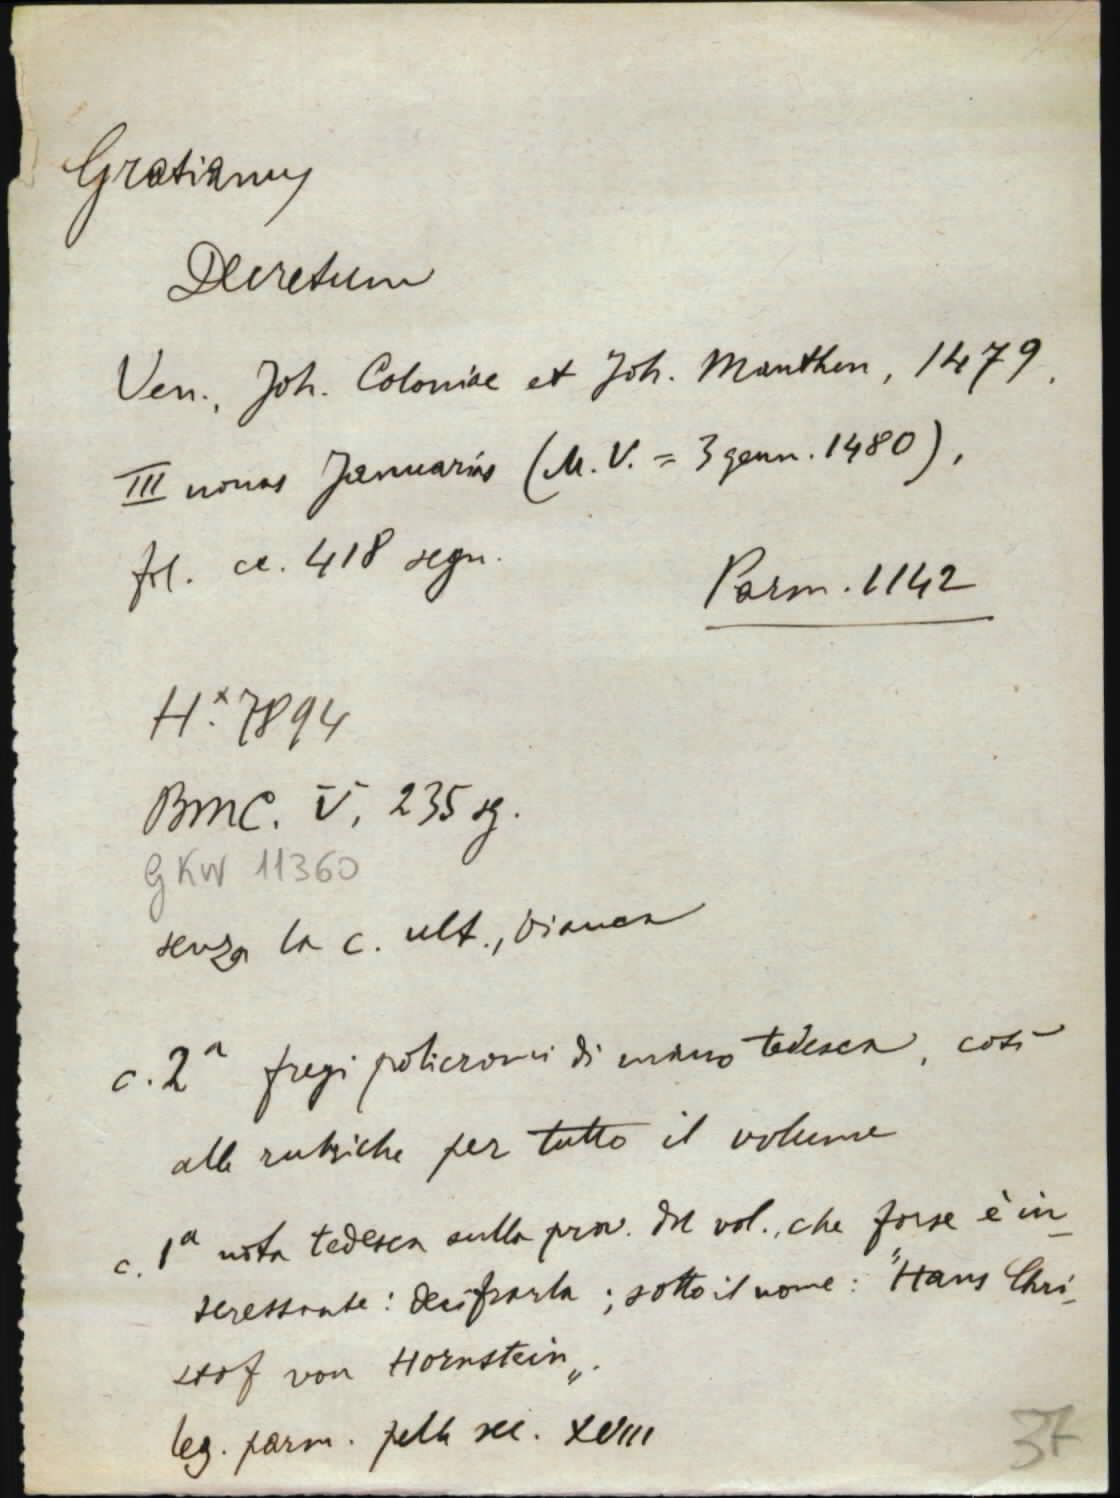 Gratianus
Decretum
Ven., Joh. Coloniae et Joh. Manthen, 1479,
III nonas Januarias (M.V. = 3 genn. 1480),
fol. cc. 418 segn.
Parm. 1142
H.x 7894
BMC. V, 235 sg.
GKW 11360
senza la c. ult., bianca
c. 2a fregi policromi di mano tedesca, così
alle rubriche per tutto il volume
c. 1a nota tedesca sulla prov. del vol., che forse è in-
teressante: decifrarla; sotto il nome: "Hans Chri-
stof von Hornstein„.
leg. parm. pelle sec. XVIII
37